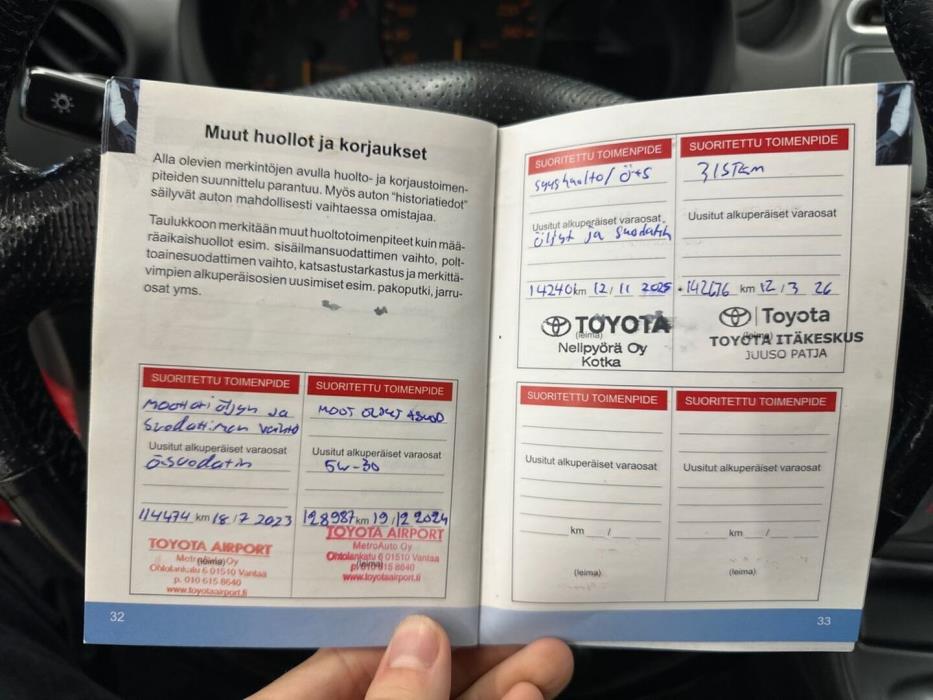 Muut huollot ja korjaukset
Alla olevien merkintöjen avulla huolto- ja korjaustoimen-
piteiden suunnittelu parantuu. Myös auton "historiatiedot"
säilyvät auton mahdollisesti vaihtaessa omistajaa.
Taulukkoon merkitään muut huoltotoimenpiteet kuin mää-
räaikaishuollot esim. sisäilmansuodattimen vaihto, polt-
toainesuodattimen vaihto, katsastustarkastus ja merkittä-
vimpien alkuperäisosien uusimiset esim. pakoputki, jarru-
osat yms.
SUORITETTU TOIMENPIDE
moottoriöljyn ja
suodattimen vaihto
Uusitut alkuperäiset varaosat
ö.suodatin
114474 km 18 / 7 2023
TOYOTA AIRPORT
MetroAuto Oy
(leima)
Ohtolankatu 6 01510 Vantaa
p. 010 615 8640
www.toyotaairport.fi
SUORITETTU TOIMENPIDE
MOOT ÖLJYT +SUOD
Uusitut alkuperäiset varaosat
5W-30
128987 km 19 / 12 2024
TOYOTA AIRPORT
MetroAuto Oy
Ohtolankatu 6 01510 Vantaa
(leima)
p. 010 615 8640
www.toyotaairport.fi
32
SUORITETTU TOIMENPIDE
syyshuolto/ Ö+S
Uusitut alkuperäiset varaosat
öljyt ja suodatin
14240 km 12 / 11 2025
TOYOTA
(leima)
Nelipyörä Oy
Kotka
SUORITETTU TOIMENPIDE
Uusitut alkuperäiset varaosat
142676 km 12 / 3 26
Toyota
(leima)
TOYOTA ITÄKESKUS
JUUSO PATJA
SUORITETTU TOIMENPIDE
Uusitut alkuperäiset varaosat
km /
(leima)
SUORITETTU TOIMENPIDE
Uusitut alkuperäiset varaosat
km /
(leima)
33